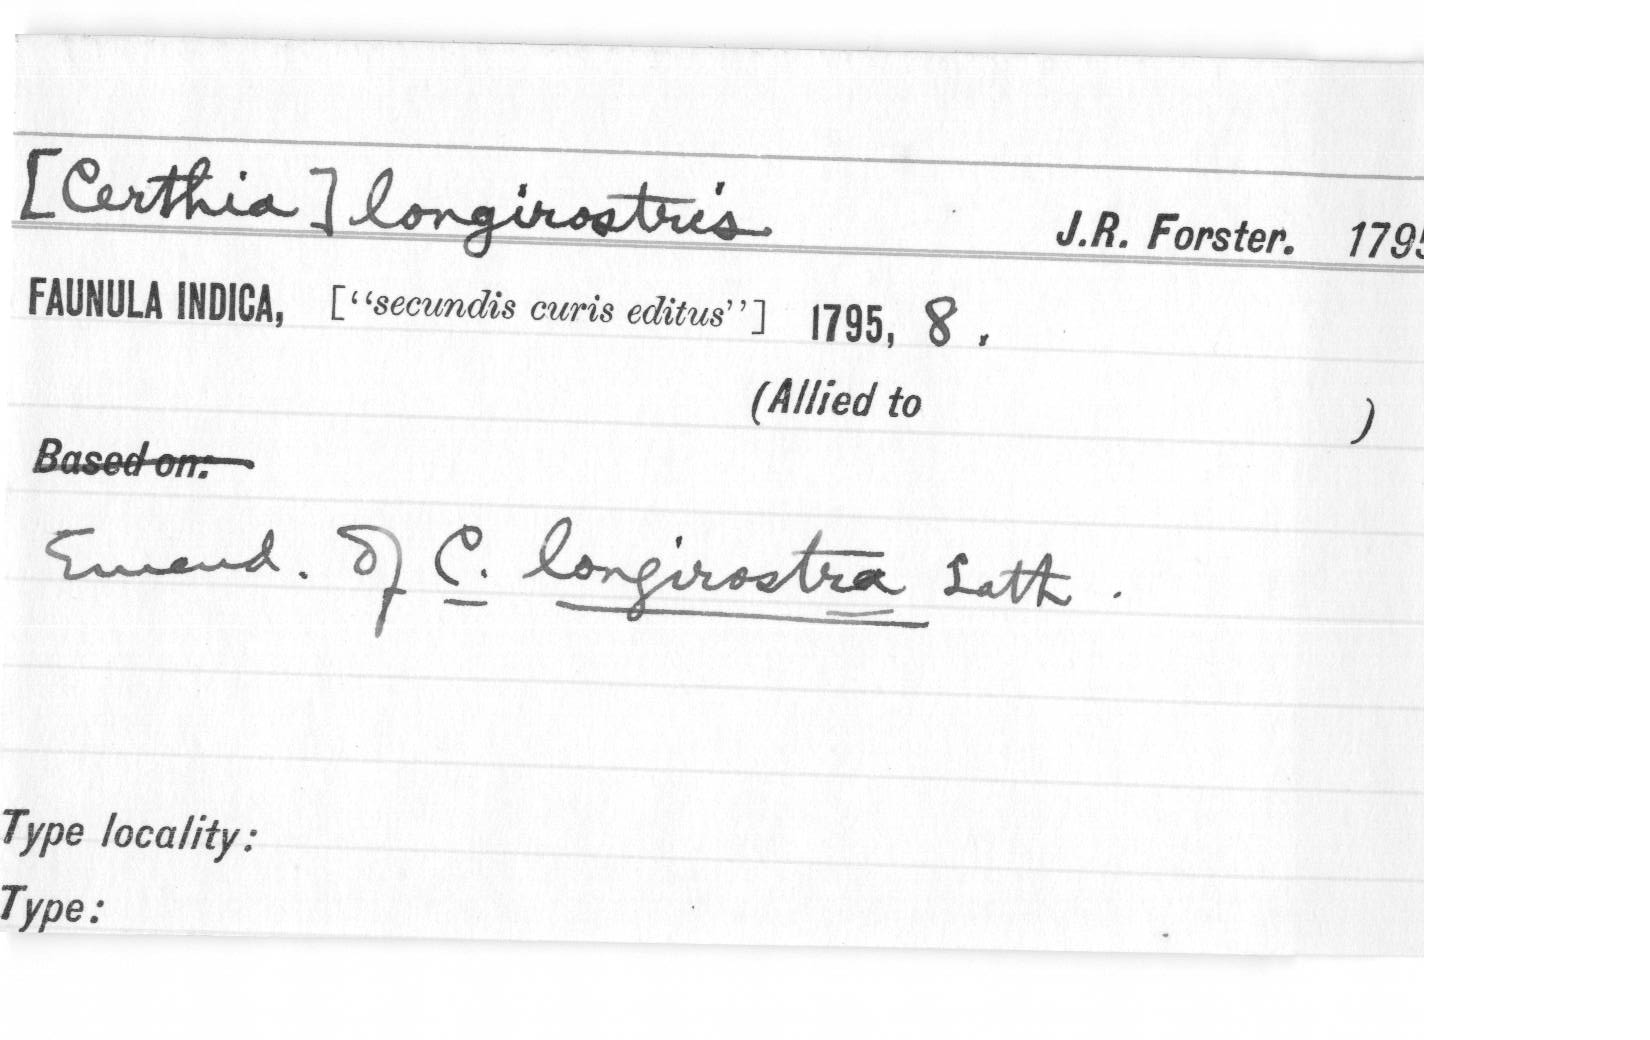 [Certhia] longirostris J.R. Forster. 1795
FAUNULA INDICA, ["secundis curis editus"] 1795, 8.
(Allied to )
Based on:
Emend. of C. longirostra Lath.
Type locality:
Type: